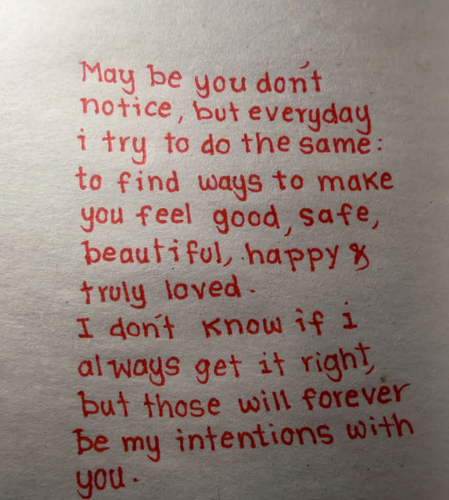 May be you don't
notice, but everyday
i try to do the same:
to find ways to make
you feel good, safe,
beautiful, happy &
truly loved.
I don't know if i
always get it right,
but those will forever
be my intentions with
you.